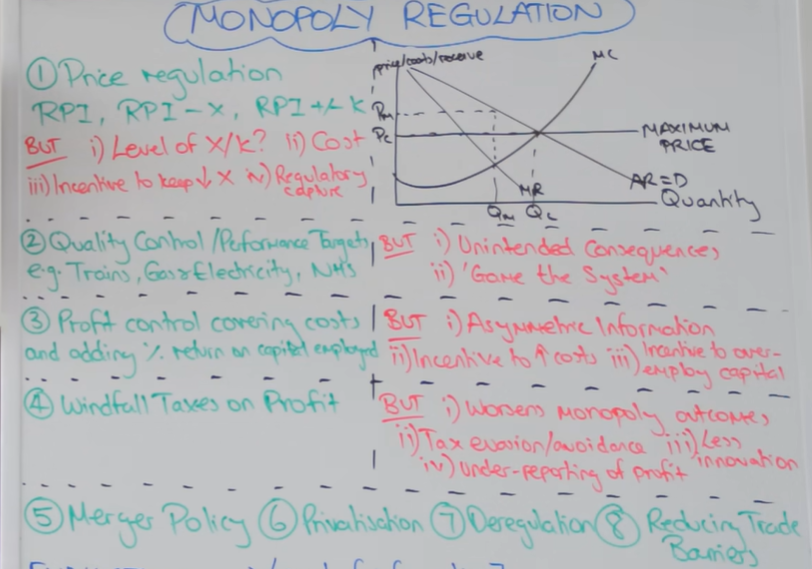 MONOPOLY REGULATION
① Price regulation
RPI, RPI - X, RPI +/- K
BUT i) Level of X/K? ii) Cost
iii) Incentive to keep ↓ X iv) Regulatory
capture
price/costs/revenue
MC
Pm
Pc
MAXIMUM
PRICE
MR
AR=D
Qm Qc
Quantity
② Quality Control/Performance Targets
e.g. Trains, Gas & Electricity, NHS
BUT i) Unintended Consequences
ii) 'Game the System'
③ Profit control covering costs
and adding % return on capital employed
BUT i) Asymmetric Information
ii) Incentive to ↑ costs iii) Incentive to over-
employ capital
④ Windfall Taxes on Profit
BUT i) Worsens Monopoly outcomes
ii) Tax evasion/avoidance iii) Less
innovation
iv) Under-reporting of profit
⑤ Merger Policy ⑥ Privatisation ⑦ Deregulation ⑧ Reducing Trade
Barriers